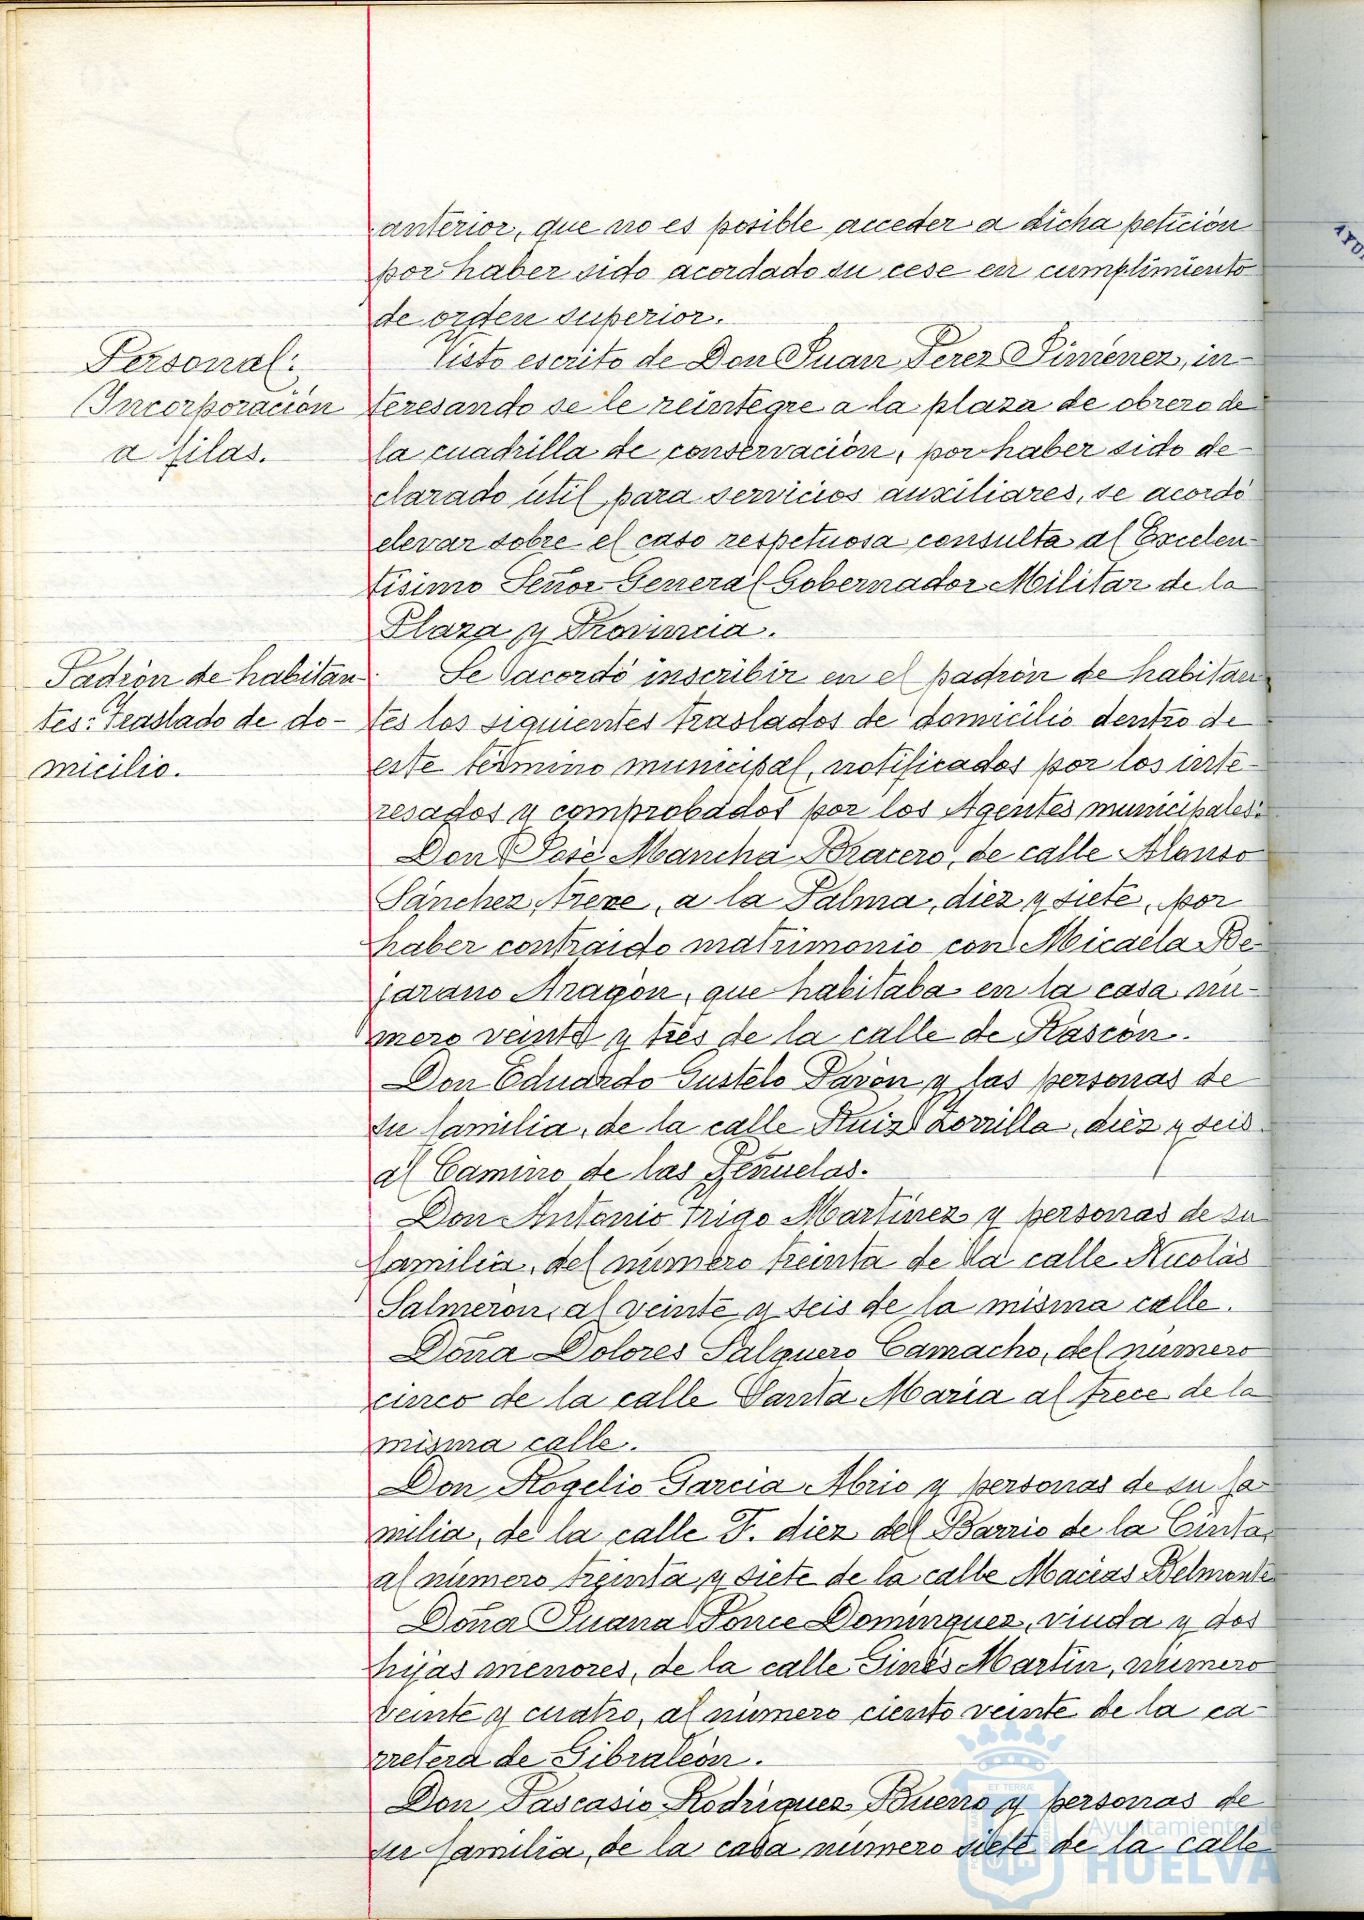 anterior, que no es posible acceder a dicha petición
por haber sido acordado su cese en cumplimiento
de orden superior.
Personal:
Incorporación
a filas.
Visto escrito de Don Juan Perez Jiménez, in-
teresando se le reintegre a la plaza de obrero de
la cuadrilla de conservación, por haber sido de-
clarado útil para servicios auxiliares, se acordó
elevar sobre el caso respetuosa consulta al Excelen-
tísimo Señor General Gobernador Militar de la
Plaza y Provincia.
Padrón de habitan-
tes: Traslado de do-
micilio.
Se acordó inscribir en el padrón de habitan
tes los siguientes traslados de domicilio dentro de
este término municipal, notificados por los inte-
resados y comprobados por los Agentes municipales:
Don José Mancha Bracero, de calle Alonso
Sánchez, treze, a la Palma, diez y siete, por
haber contraido matrimonio con Micaela Be-
jarano Aragón, que habitaba en la casa nú-
mero veinte y tres de la calle de Rascón.
Don Eduardo Gustelo Pavón y las personas de
su familia, de la calle Ruiz Zorrilla, diez y seis
al Camino de las Peñuelas.
Don Antonio Trigo Martínez y personas de su
familia, del número treinta de la calle Nicolás
Salmerón, al veinte y seis de la misma calle.
Doña Dolores Salguero Camacho, del número
cinco de la calle Santa María al trece de la
misma calle.
Don Rogelio García Abrio y personas de su fa-
milia, de la calle F. diez del Barrio de la Cinta,
al número treinta y siete de la calle Macías Belmonte
Doña Juana Ponce Domínguez, viuda y dos
hijas menores, de la calle Ginés Martín, número
veinte y cuatro, al número ciento veinte de la ca-
rretera de Gibraleón.
Don Pascasio Rodríguez Bueno y personas de
su familia, de la casa número siete de la calle
Ayuntamiento de
HUELVA